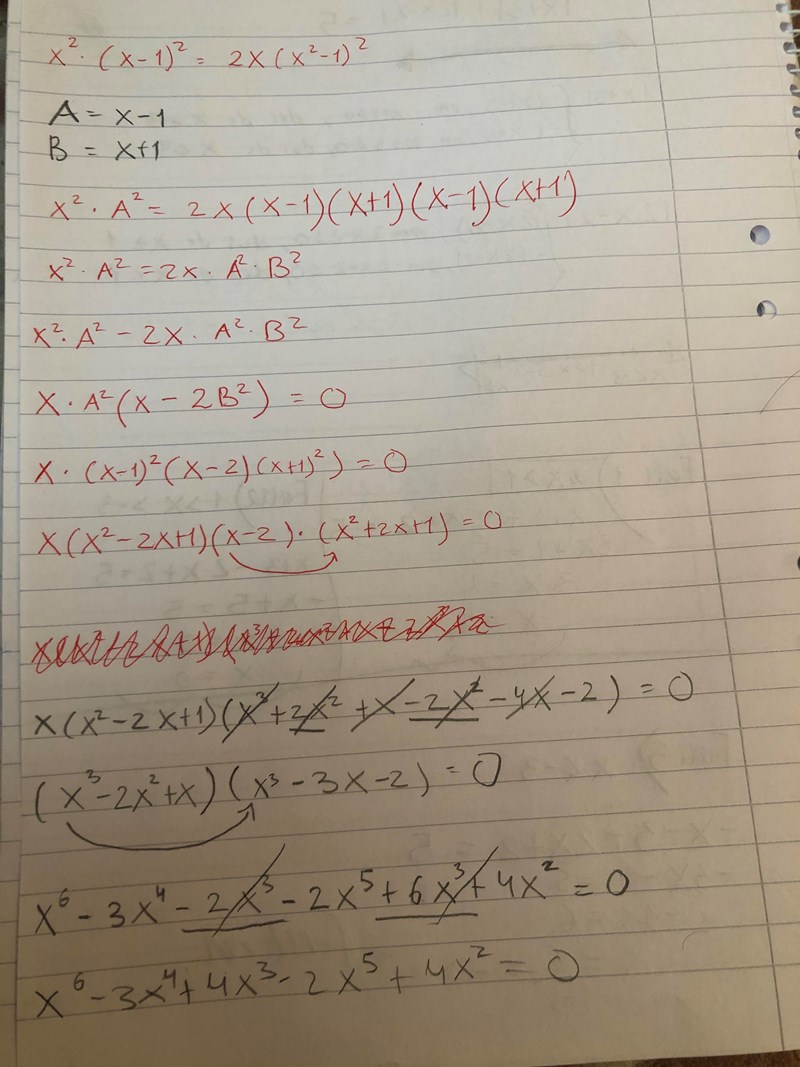 x² · (x-1)² = 2x(x²-1)²
A = x-1
B = x+1
x² · A² = 2x(x-1)(x+1)(x-1)(x+1)
x² · A² = 2x · A² · B²
x² · A² - 2x · A² · B²
x · A²(x - 2B²) = 0
x · (x-1)²(x-2)(x+1)²) = 0
x(x²-2x+1)(x-2) · (x²+2x+1) = 0
x(x²-2x+1)(x³+2x²+x-2x²-4x-2) = 0
(x³-2x²+x)(x³-3x-2) = 0
x⁶-3x⁴-2x³-2x⁵+6x³+4x² = 0
x⁶-3x⁴+4x³-2x⁵+4x² = 0